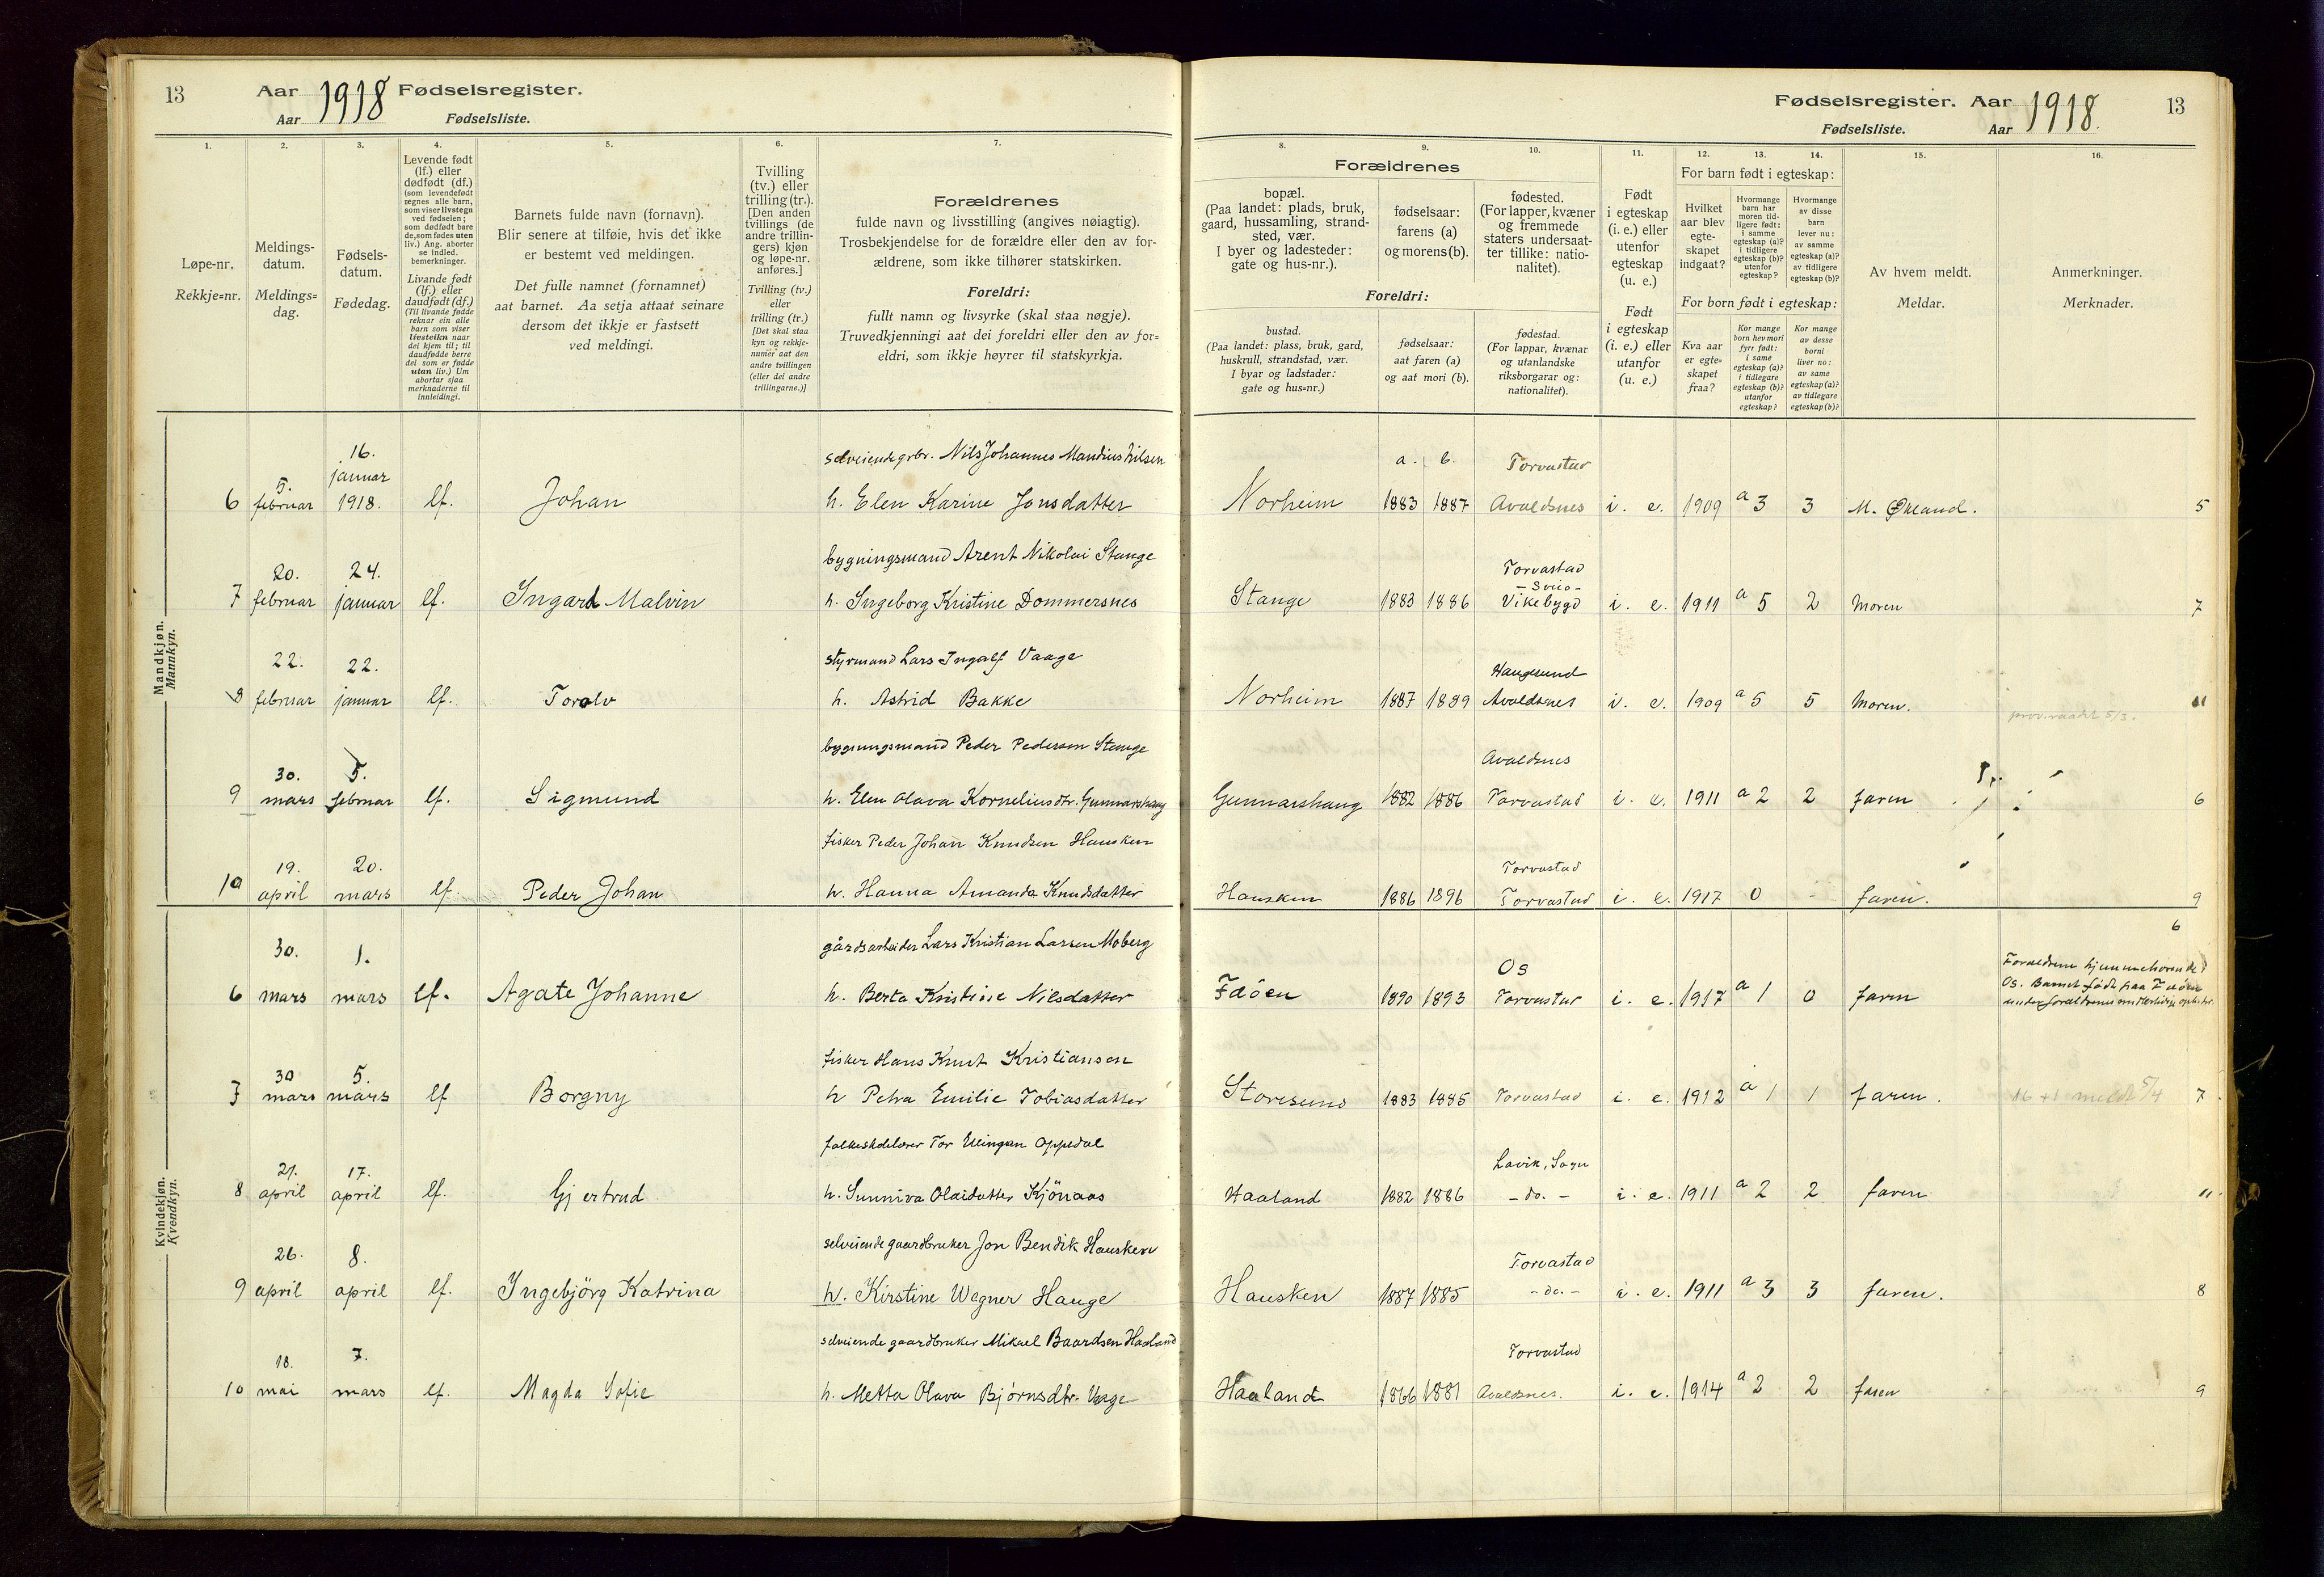 13 Aar 1918 Fødselsregister.
Aar Fødselsliste.
1. 2. 3. 4. 5. 6. 7.
Løpe-nr.
Rekkje=nr.
Meldings-
datum.
Meldings=
dag.
Fødsels-
datum.
Fødedag.
Levende født
(lf.) eller
dødfødt (df.)
(som levendefødt
regnes alle barn,
som viser livstegn
ved fødselen;
som dødfødt bare
de, som fødes uten
liv.) Ang. aborter
se indled.
bemerkninger.
Livande født
(lf.) eller
daudfødt (df.)
(Til livande fødde
reknar ein alle
barn som viser
livsteikn naar
dei kjem til; til
daudfødde berre
dei som er fødde
utan liv.) Um
abortar sjaa
merknaderne til
innleidingi.
Barnets fulde navn (fornavn).
Blir senere at tilføie, hvis det ikke
er bestemt ved meldingen.
Det fulle namnet (fornamnet)
aat barnet. Aa setja attaat seinare
dersom det ikkje er fastsett
ved meldingi.
Tvilling
(tv.) eller
trilling (tr.).
[Den anden
tvillings (de
andre trillin-
gers) kjøn
og løpe-nr.
anføres.]
Tvilling (tv.)
eller
trilling (tr.)
[Det skal staa
kyn og rekkje-
numer aat den
andre tvillingen
(eller dei andre
trillingarne.)]
Forældrenes
fulde navn og livsstilling (angives nøiagtig).
Trosbekjendelse for de forældre eller den av for-
ældrene, som ikke tilhører statskirken.
Foreldri:
fullt namn og livsyrke (skal staa nøgje).
Truvedkjenningi aat dei foreldri eller den av for=
eldri, som ikkje høyrer til statskyrkja.
Mandkjøn.
Mannkyn.
16.
januar
selveiende grbr. Nils Johannes Mandius Nilsen
6 5. februar 1918. lf. Johan h. Elen Karine Jonsdatter
bygningsmand Arent Nikolai Stange
20. 24.
7 februar januar lf. Ingard Malvin h. Ingeborg Kristine Dommersnes
styrmand Lars Ingolf Vaage
22. 22.
8 februar januar lf. Toralv h. Astrid Bakke
bygningsmand Peder Pedersen Stange
30. 5.
9 mars februar lf. Sigmund h. Elen Olava Korneliusdtr. Gunnarshaug
fisker Peder Johan Knudsen Hausken
19. 20.
10 april mars lf. Peder Johan h. Hanna Amanda Knudsdatter
Kvindekjøn.
Kvendkyn.
gårdsarbeider Lars Kristian Larsen Moberg
30. 1.
6 mars mars lf. Agate Johanne h. Berta Kristine Nilsdatter
fisker Hans Knut Kristiansen
30 5.
7 mars mars lf Borgny h Petra Emilie Tobiasdatter
folkeskolelærer Tor Ellingsen Oppedal
21. 17.
8 april april lf. Gjertrud h. Sunniva Olaidatter Kjönaas
selveiende gaardbruker Jon Bendik Hausken
26. 8.
9 april april lf. Ingebjörg Katrina h. Kirstine Wegner Hauge
selveiende gaardbruker Mikael Baardsen Haaland
18. 7.
10 mai mars lf. Magda Sofie h. Metta Olava Björnsdtr. Vaage
Fødselsregister. Aar 1918. 13
Fødselsliste. Aar
8. 9. 10. 11. 12. 13. 14. 15. 16.
Forældrenes
bopæl.
(Paa landet: plads, bruk,
gaard, hussamling, strand-
sted, vær.
I byer og ladesteder:
gate og hus-nr.).
fødselsaar:
farens (a)
og morens (b).
fødested.
(For lapper, kvæner
og fremmede
staters undersaat-
ter tillike: natio-
nalitet).
Foreldri:
bustad.
(Paa landet: plass, bruk, gard,
huskrull, strandstad, vær.
I byar og ladstader:
gate og hus=nr.)
fødselsaar:
aat faren (a)
og aat mori (b).
fødestad.
(For lappar, kvænar
og utanlandske
riksborgarar og:
nationalitet).
Født
i egteskap
(i. e.) eller
utenfor
egteskap
(u. e.)
Født
i egteskap
(i. e.) eller
utanfor
(u. e.)
For barn født i egteskap:
Hvilket
aar blev
egte-
skapet
indgaat?
Hvormange
barn har
moren tid-
ligere født:
i samme
egteskap (a)?
i tidligere
egteskap (b)?
utenfor
egteskap?
Hvormange
av disse
barn
lever nu:
av samme
egteskap (a)?
av tidligere
egteskap (b)?
For born født i egteskap:
Kva aar
er egte=
skapet
fraa?
Kor mange
born hev mori
fyrr født:
i same
egteskap (a)?
i tidlegare
egteskap (b)?
utanfor
egteskap?
Kor mange
av desse
borni
liver no:
av same
egteskap (a)?
av tidlegare
egteskap (b)?
Av hvem meldt.
Meldar.
Anmerkninger.
Merknader.
a. b. Torvastad
Norheim 1883 1887 Avaldsnes i. e. 1909 a 3 3 M. Økland. 5
Torvastad
- Sveio -
Stange 1883 1886 Vikebygd i. e. 1911 a 5 2 Moren 7
Haugesund
Norheim 1887 1889 Avaldsnes i. e. 1909 a 5 5 Moren. 11
Avaldsnes
Gunnarshaug 1882 1886 Torvastad i. e. 1911 a 2 2 faren 6
Torvastad
Hausken 1886 1896 Torvastad i. e. 1917 0 - faren. 9
6
Os
Forældrene hjemmehørende i
Os. Barnet født paa Fdöen
under forældrenes midlertidige ophold.
Fdöen 1890 1893 Torvastad i. e. 1917 a 1 0 faren
Storesund 1883 1885 Torvastad i. e. 1912 a 1 1 faren. 16 + 1 meldt 5/4 7
Lavik, Sogn
Haaland 1882 1886 - do. - i. e. 1911 a 2 2 faren 11.
Torvastad
Hausken 1887 1885 - do. - i. e. 1911 a 3 3 faren. 8
Torvastad
Haaland 1866 1881 Avaldsnes. i. e. 1914 a 2 2 faren 9